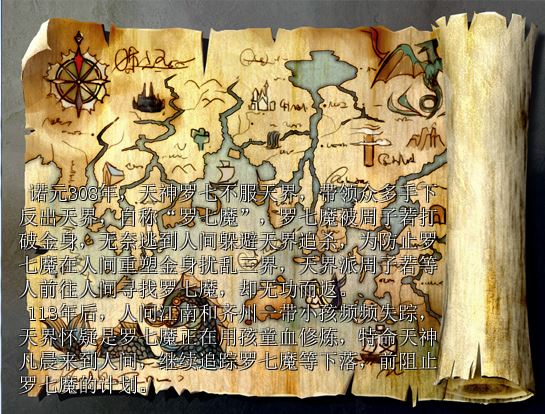 诺元308年，天神罗七不服天界，带领众多手下
反出天界，自称“罗七魔”，罗七魔被周子若打
破金身，无奈逃到人间躲避天界追杀，为防止罗
七魔在人间重塑金身扰乱三界，天界派周子若等
人前往人间寻找罗七魔，却无功而返。
113年后，人间江南和齐州一带小孩频频失踪，
天界怀疑是罗七魔正在用孩童血修炼，特命天神
凡晨来到人间，继续追踪罗七魔等下落，前阻止
罗七魔的计划。